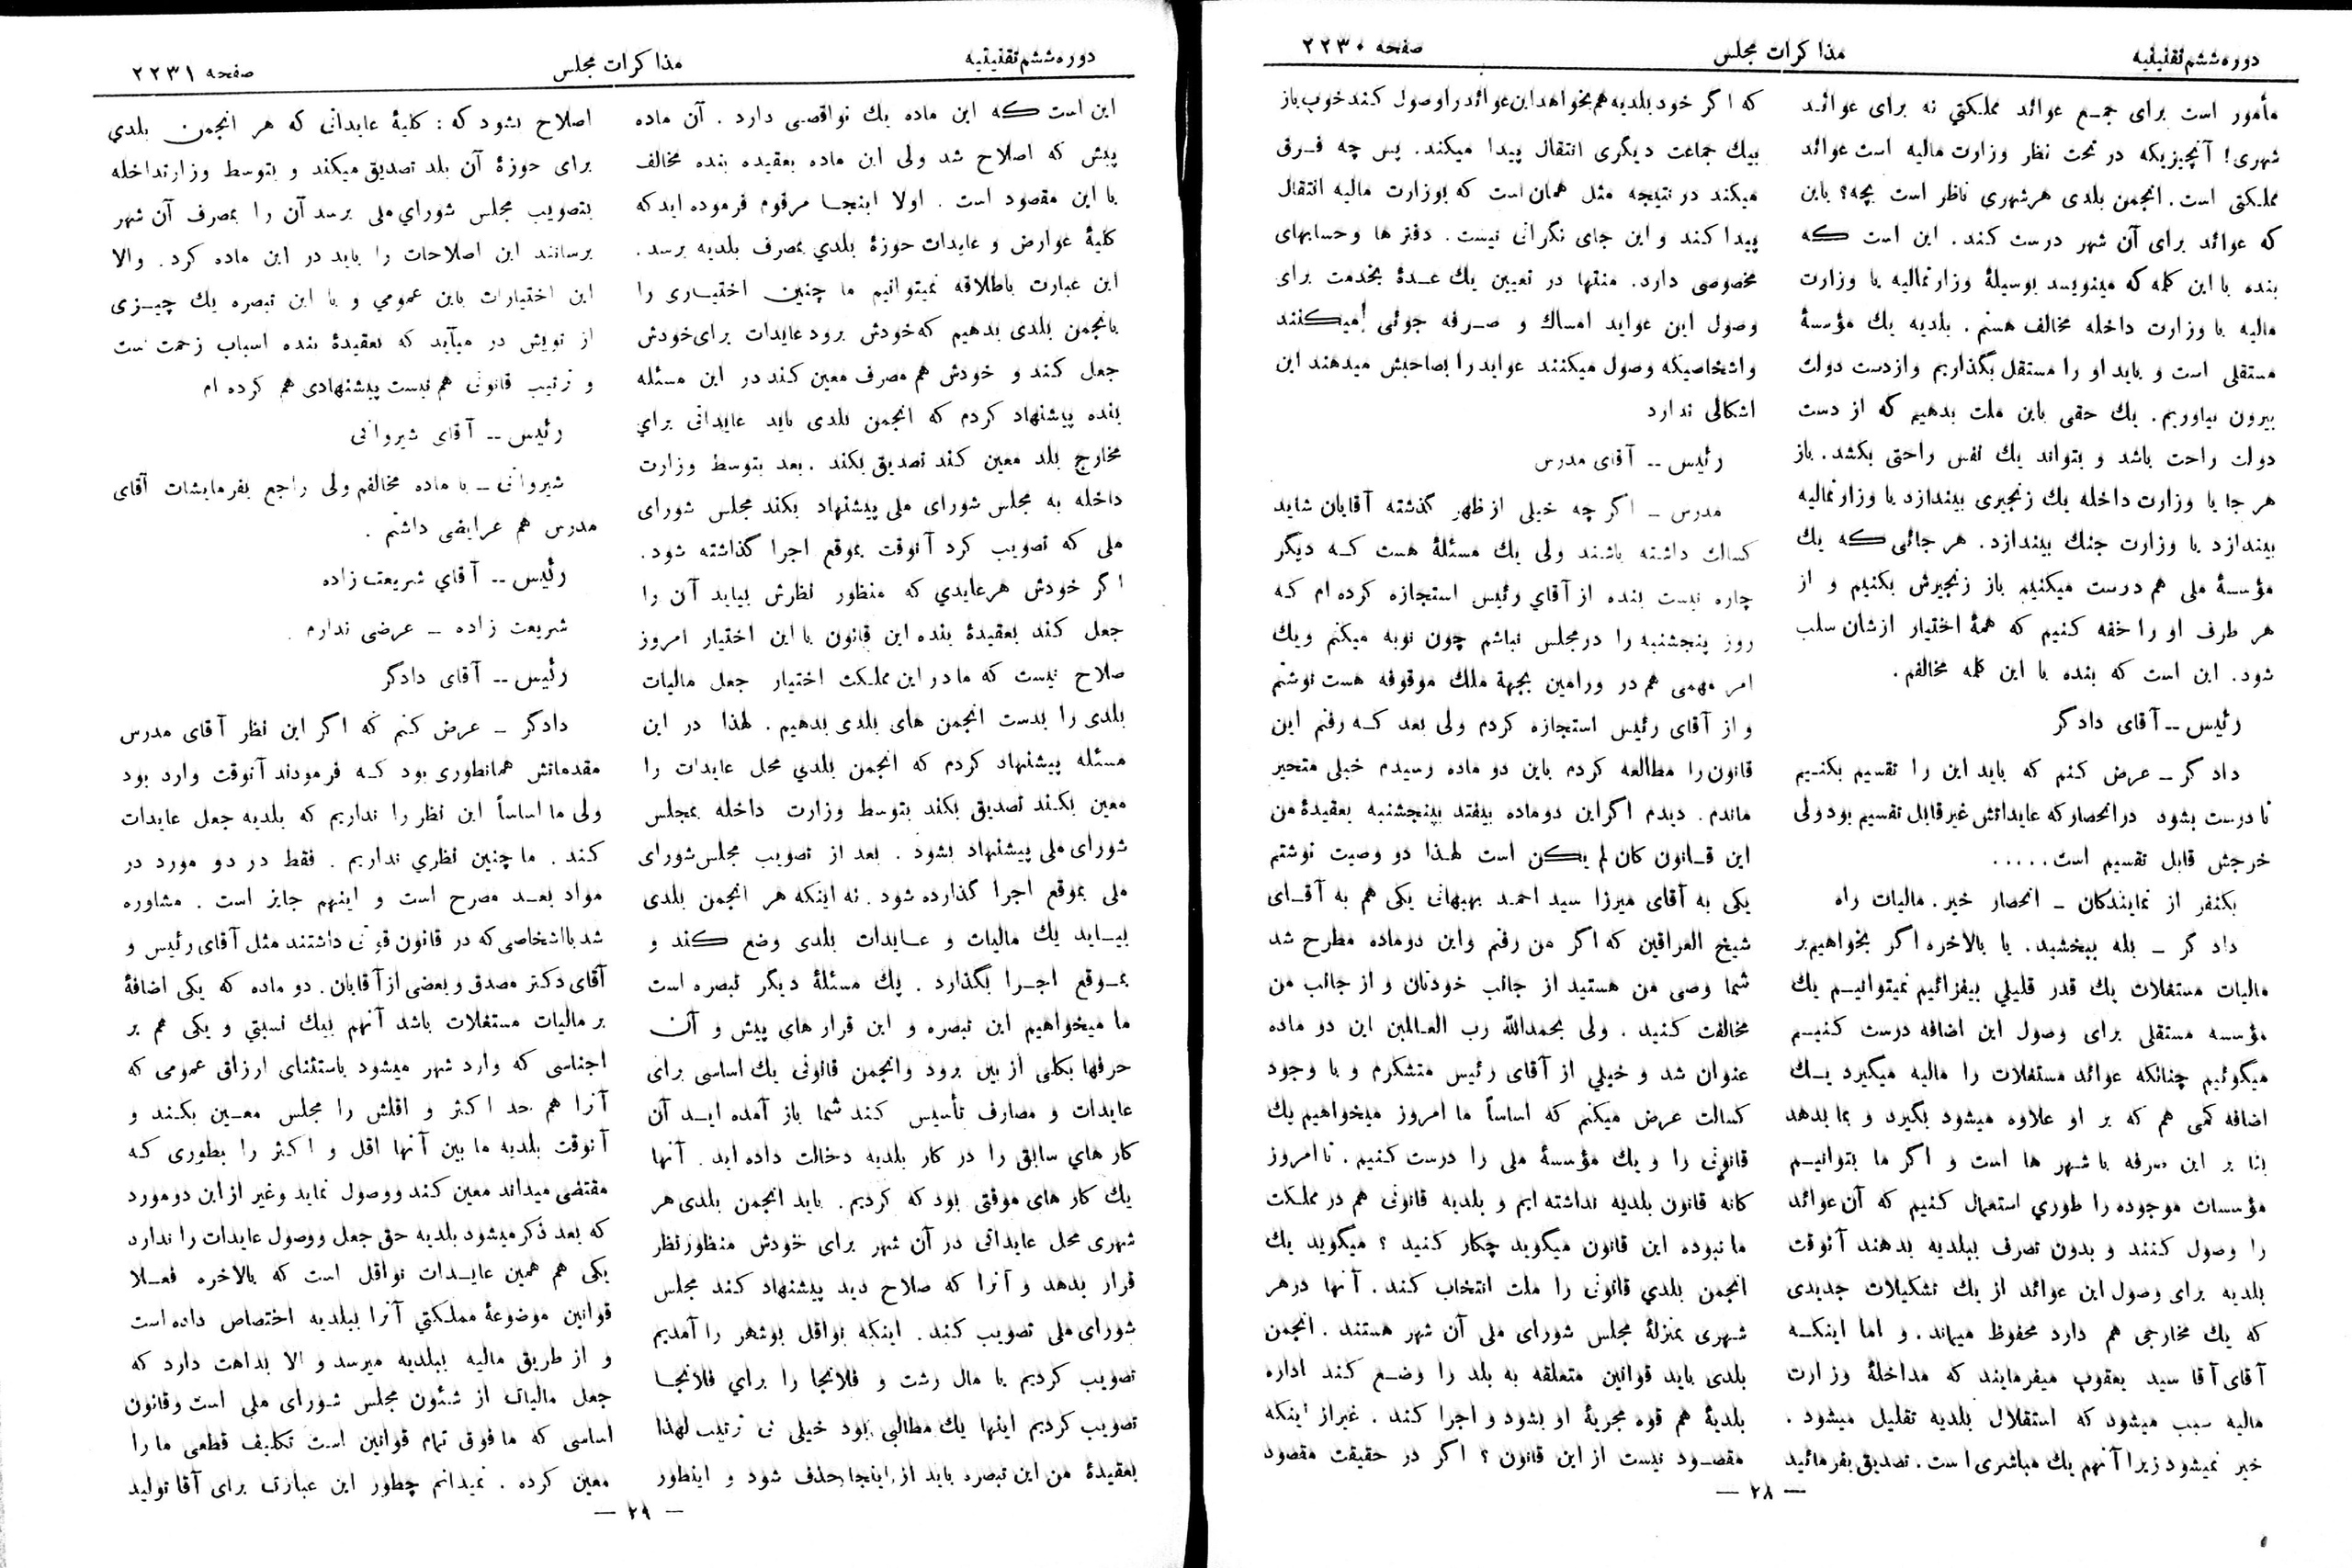 دوره ششم تقنینیه
مذاکرات مجلس
صفحه ۲۲۳۰
مأمور است برای جمع عوائد مملکتی نه برای عوائد
شهری! آنچیزیکه در تحت نظر وزارت مالیه است عوائد
مملکتی است. انجمن بلدی هر شهری ناظر است بچه؟ باین
که عوائد برای آن شهر درست کند. این است که
بنده با این کلمه که مینویسد بوسیلهٔ وزارتمالیه یا وزارت
مالیه یا وزارت داخله مخالف هستم. بلدیه یك مؤسسهٔ
مستقلی است و باید او را مستقل بگذاریم و از دست دولت
بیرون بیاوریم. یك حقی باین ملت بدهیم که از دست
دولت راحت باشد و بتواند یك نفس راحتی بکشد. باز
هر جا یا وزارت داخله یك زنجیری بیندازد یا وزارتمالیه
بیندازد یا وزارت جنك بیندازد. هر جائی که یك
مؤسسهٔ ملی هم درست میکنیم باز زنجیرش بکنیم و از
هر طرف او را خفه کنیم که همهٔ اختیار ازشان سلب
شود. این است که بنده با این کلمه مخالفم.
رئیس ــ آقای دادگر
دادگر ــ عرض کنم که باید این را تقسیم بکنیم
تا درست بشود در انحصار که عایداتش غیر قابل تقسیم بود ولی
خرجش قابل تقسیم است.....
یکنفر از نمایندکان ــ انحصار خیر. مالیات راه
دادگر ــ بله ببخشید. یا بالاخره اگر بخواهیم بر
مالیات مستغلات یك قدر قلیلی بیفزائیم نمیتوانیم یك
مؤسسه مستقلی برای وصول این اضافه درست کنیم
میگوئیم چنانکه عوائد مستغلات را مالیه میگیرد یك
اضافه کمی هم که بر او علاوه میشود بگیرد و بما بدهد
بنا بر این صرفه با شهر ها است و اگر ما بتوانیم
مؤسسات موجوده را طوري استعمال کنیم که آن عوائد
را وصول کنند و بدون تصرف ببلدیه بدهند آنوقت
بلدیه برای وصول این عوائد از یك تشکیلات جدیدی
که یك مخارجی هم دارد محفوظ میماند. و اما اینکه
آقای آقا سید یعقوب میفرمایند که مداخلهٔ وزارت
مالیه سبب میشود که استقلال بلدیه تقلیل میشود.
خیر نمیشود زیرا آنهم یك مباشری است. تصدیق بفرمائید
که اگر خود بلدیه هم بخواهد این عوائد را وصول کند خوب باز
بیك جماعت دیگری انتقال پیدا میکند. پس چه فرق
میکند در نتیجه مثل همان است که بوزارت مالیه انتقال
پیدا کند و این جای نگرانی نیست. دفتر ها و حسابهای
مخصوصی دارد. منتها در تعیین یك عدهٔ بخدمت برای
وصول این عواید امساك و صرفه جوئی میکنند
و اشخاصیکه وصول میکنند عواید را بصاحبش میدهند این
اشکالی ندارد
رئیس ــ آقای مدرس
مدرس ــ اگر چه خیلی از ظهر گذشته آقایان شاید
کسالت داشته باشند ولی یك مسئلهٔ هست که دیگر
چاره نیست بنده از آقاي رئیس استجازه کرده ام که
روز پنجشنبه را در مجلس نباشم چون نوبه میکنم و یك
امر مهمی هم در ورامین بجهة ملك موقوفه هست نوشتم
و از آقای رئیس استجازه کردم ولی بعد که رفتم این
قانون را مطالعه کردم باین دو ماده رسیدم خیلی متحیر
ماندم. دیدم اگر این دو ماده بیفتد بپنجشنبه بعقیدهٔ من
این قانون کان لم یکن است لهذا دو وصیت نوشتم
یکی به آقای میرزا سید احمد بهبهانی یکی هم به آقای
شیخ العراقین که اگر من رفتم و این دو ماده مطرح شد
شما وصی من هستید از جانب خودتان و از جانب من
مخالفت کنید. ولی بحمدالله رب العالمین این دو ماده
عنوان شد و خیلي از آقای رئیس متشکرم و با وجود
کسالت عرض میکنم که اساساً ما امروز میخواهیم یك
قانونی را و یك مؤسسهٔ ملی را درست کنیم. تا امروز
کانه قانون بلدیه نداشته ایم و بلدیه قانونی هم در مملکت
ما نبوده این قانون میگوید چکار کنید؟ میگوید یك
انجمن بلدي قانونی را ملت انتخاب کند. آنها در هر
شهری بمنزلهٔ مجلس شورای ملی آن شهر هستند. انجمن
بلدی باید قوانین متعلقه به بلد را وضع کند اداره
بلدیهٔ هم قوه مجریهٔ او بشود و اجرا کند. غیر از اینکه
مقصود نیست از این قانون؟ اگر در حقیقت مقصود
— ۲۸ —
دوره ششم تقنینیه
مذاکرات مجلس
صفحه ۲۲۳۱
این است که این ماده یك نواقصی دارد. آن ماده
پیش که اصلاح شد ولی این ماده بعقیده بنده مخالف
با این مقصود است. اولا اینجا مرقوم فرموده اید که
کلیهٔ عوارض و عایدات حوزهٔ بلدي بمصرف بلدیه برسد.
این عبارت باطلاقه نمیتوانیم ما چنین اختیاری را
بانجمن بلدی بدهیم که خودش برود عایدات برای خودش
جعل کند و خودش هم مصرف معین کند در این مسئله
بنده پیشنهاد کردم که انجمن بلدی باید عایداتی براي
مخارج بلد معین کند تصدیق بکند. بعد بتوسط وزارت
داخله به مجلس شورای ملی پیشنهاد بکند مجلس شورای
ملی که تصویب کرد آنوقت بموقع اجرا گذاشته شود.
اگر خودش هر عایدي که منظور نظرش بیاید آن را
جعل کند بعقیدهٔ بنده این قانون با این اختیار امروز
صلاح نیست که ما در این مملکت اختیار جعل مالیات
بلدی را بدست انجمن های بلدی بدهیم. لهذا در این
مسئله پیشنهاد کردم که انجمن بلدي محل عایدات را
معین بکند تصدیق بکند بتوسط وزارت داخله بمجلس
شورای ملی پیشنهاد بشود. بعد از تصویب مجلس شورای
ملی بموقع اجرا گذارده شود. نه اینکه هر انجمن بلدی
بیاید یك مالیات و عایدات بلدی وضع کند و
بموقع اجرا بگذارد. یك مسئلهٔ دیگر تبصره است
ما میخواهیم این تبصره و این قرار هاي پیش و آن
حرفها بکلی از بین برود و انجمن قانونی یك اساسی برای
عایدات و مصارف تأسیس کند شما باز آمده اید آن
کار هاي سابق را در کار بلدیه دخالت داده اید. آنها
یك کار های موقتی بود که کردیم. باید انجمن بلدی هر
شهری محل عایداتی در آن شهر برای خودش منظور نظر
قرار بدهد و آنرا که صلاح دید پیشنهاد کند مجلس
شورای ملی تصویب کند. اینکه نواقل بوشهر را آمدیم
تصویب کردیم یا مال رشت و فلانجا را براي فلانجا
تصویب کردیم اینها یك مطالبی بود خیلی بی ترتیب لهذا
بعقیدهٔ من این تبصره باید از اینجا حذف شود و اینطور
اصلاح شود که: کلیهٔ عایداتی که هر انجمن بلدي
برای حوزهٔ آن بلد تصدیق میکند و بتوسط وزارتداخله
بتصویب مجلس شوراي ملی برسد آن را بمصرف آن شهر
برسانند این اصلاحات را باید در این ماده کرد. والا
این اختیارات باین عمومي و با این تبصره یك چیزی
از تویش در میآید که بعقیدهٔ بنده اسباب زحمت است
و ترتیب قانونی هم نیست پیشنهادی هم کرده ام
رئیس ــ آقای شیروانی
شیروانی ــ با ماده مخالفم ولی راجع بفرمایشات آقای
مدرس هم عرایضی داشتم.
رئیس ــ آقاي شریعت زاده
شریعت زاده ــ عرضی ندارم.
رئیس ــ آقای دادگر
دادگر ــ عرض کنم که اگر این نظر آقای مدرس
مقدماتش همانطوری بود که فرمودند آنوقت وارد بود
ولی ما اساساً این نظر را نداریم که بلدیه جعل عایدات
کند. ما چنین نظري نداریم. فقط در دو مورد در
مواد بعد مصرح است و اینهم جایز است. مشاوره
شد با اشخاصی که در قانون داشتند مثل آقای رئیس و
آقای دکتر مصدق و بعضی از آقایان. دو ماده که یکی اضافهٔ
بر مالیات مستغلات باشد آنهم بیك نسبتي و یکی هم بر
اجناسی که وارد شهر میشود باستثنای ارزاق عمومی که
آنرا هم حد اکثر و اقلش را مجلس معین بکند و
آنوقت بلدیه ما بین آنها اقل و اکثر را بطوری که
مقتضی میداند معین کند و وصول نماید و غیر از این دو مورد
که بعد ذکر میشود بلدیه حق جعل و وصول عایدات را ندارد
یکی هم همین عایدات نواقل است که بالاخره فعلا
قوانین موضوعهٔ مملکتي آنرا ببلدیه اختصاص داده است
و از طریق مالیه ببلدیه میرسد و الا بداهت دارد که
جعل مالیات از شئون مجلس شورای ملی است و قانون
اساسی که ما فوق تمام قوانین است تکلیف قطعی ما را
معین کرده. نمیدانم چطور این عبارت برای آقا تولید
— ۲۹ —